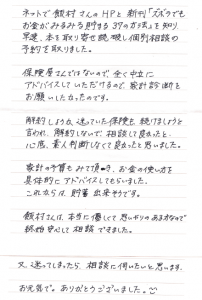 ネットで飯村さんのHPと新刊「ズボラでも
お金がみるみる貯まる37の方法」を知り、
早速、本を取り寄せ読破し個別相談の
予約を取りました。
保険屋さんではないので、全く中立に
アドバイスしていただけるので、家計診断を
お願いしたかったのです。
解約しようか迷っていた保険を、続けましょうと
言われ、解約しないで、相談して良かったと
心底、素人判断しなくて良かったと思いました。
家計の予算もみて頂き、お金の使い方を
具体的にアドバイスしてもらいました。
これからは、貯蓄出来そうです。
飯村さんは、本当に優しくて思いやりのある方なので
終始安心して相談できました。
又、迷ってしまったら、相談に伺いたいと思います。
お元気で。ありがとうございました。